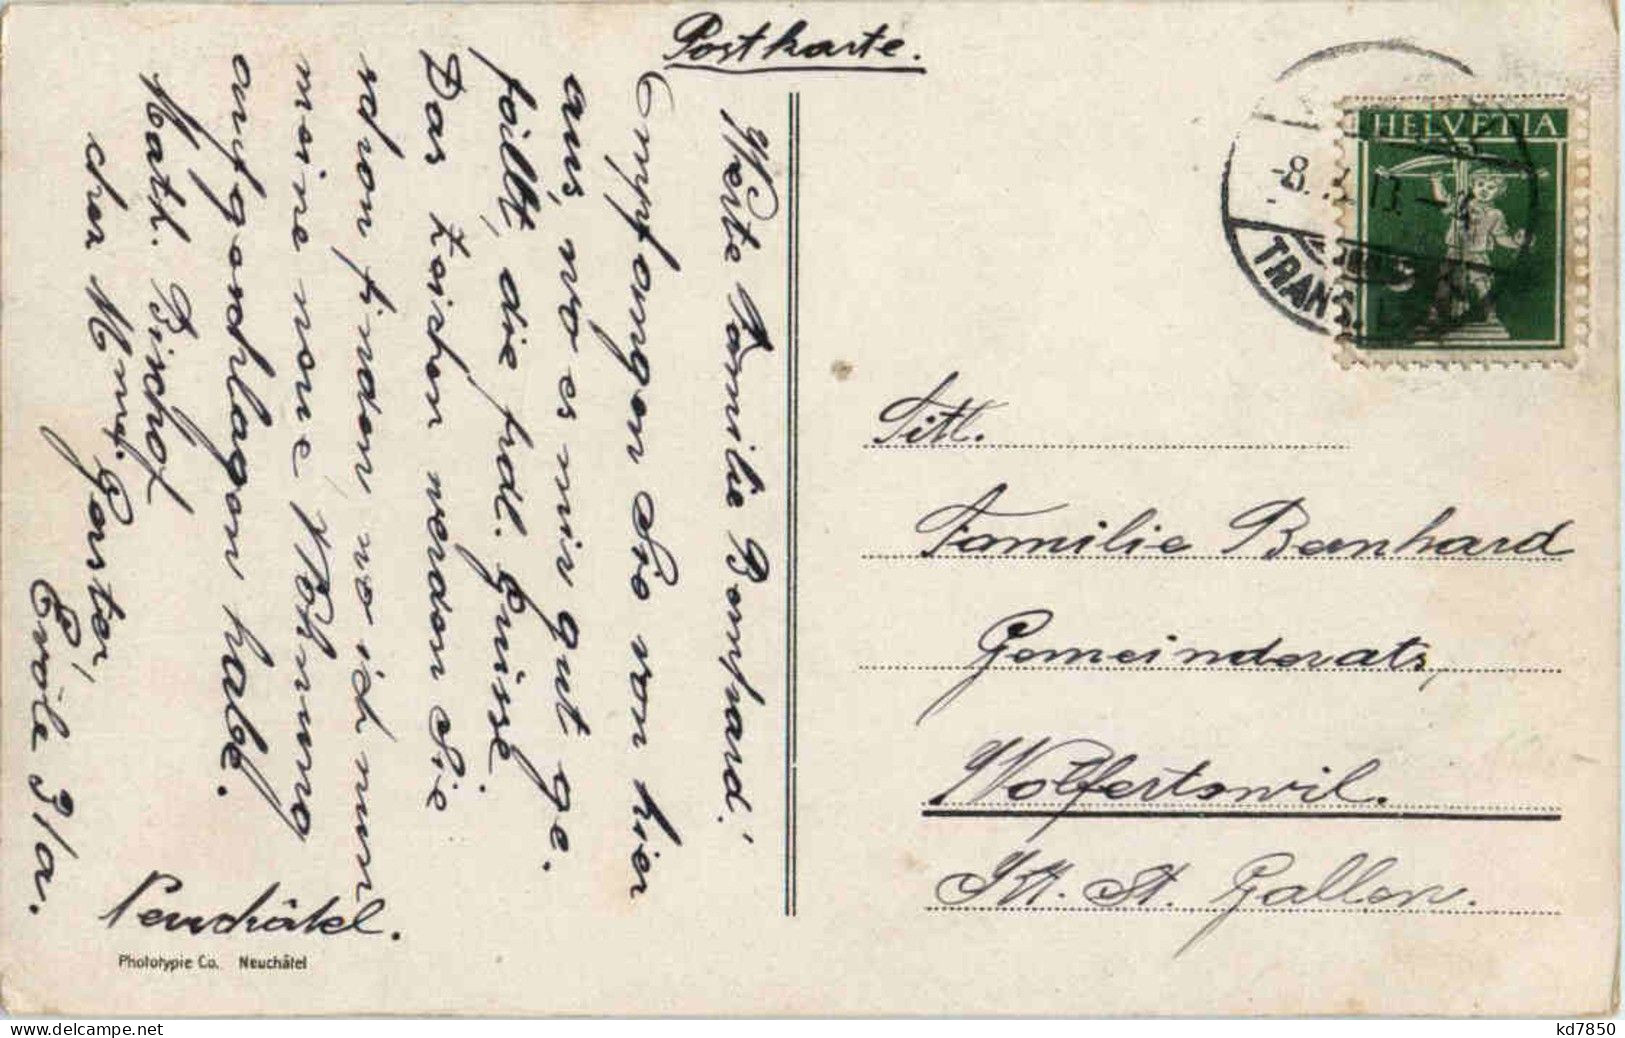 Postkarte.
Werte Familie Bernhard!
Empfangen Sie von hier
aus, wo es mir gut ge-
fällt, die frdl. Grüsse.
Das Zeichen werden Sie
schon finden wo ich nun
meine neue Wohnung
aufgeschlagen habe.
Math. Bischof
chez Mme.
Evole 31a.
Neuchâtel.
Phototypie Co. Neuchâtel
HELVETIA
-8.
TRANS.
Titl.
Familie Bernhard
Gemeinderats,
Wolfertswil.
Kt. St. Gallen.
kd7850
www.delcampe.net